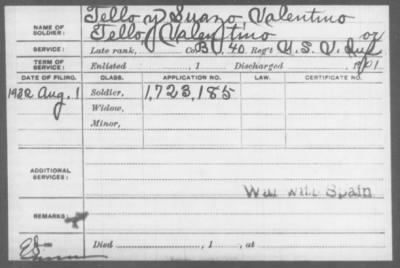 Tello y Suazo, Valentino
NAME OF SOLDIER: Tello, Valentino or
SERVICE: Late rank, Co. B, 40 Reg't U.S.V. Inf
TERM OF SERVICE: Enlisted , 1 Discharged , 1901
DATE OF FILING. CLASS. APPLICATION NO. LAW. CERTIFICATE NO.
1922 Aug. 1 Soldier, 1,723,185
Widow,
Minor,
ADDITIONAL SERVICES:
War with Spain
REMARKS:
Died , 1 , at